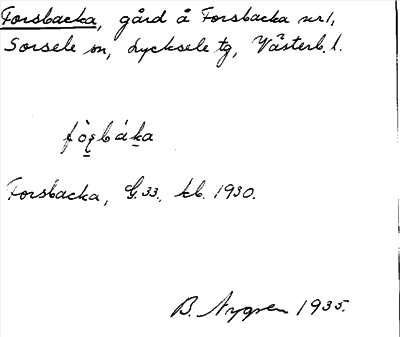 Forsbacka, gård å Forsbacka nr 1,
Sorsele sn, Lycksele tg, Västerb. l.
Forsbacka, G. 33, kb. 1930.
B. Nygren 1935.